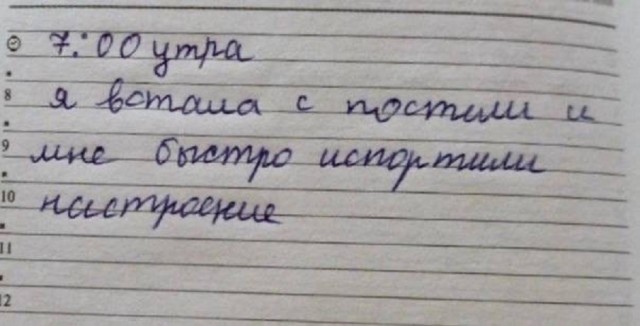 7:00 утра
8 я встала с постели и
9 мне быстро испортили
10 настроение
11
12